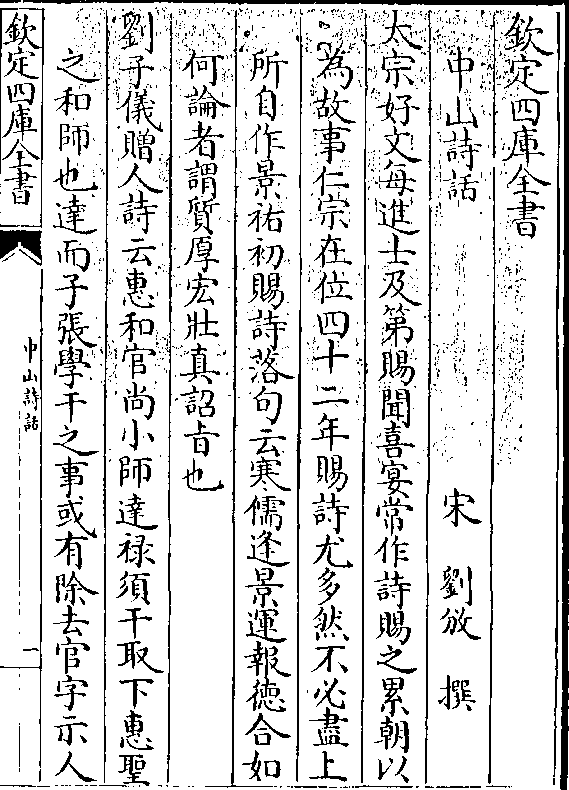 欽定四庫全書
中山詩話
宋　劉攽　撰
太宗好文每進士及第賜聞喜宴常作詩賜之累朝以
為故事仁宗在位四十二年賜詩尤多然不必盡上
所自作景祐初賜詩落句云寒儒逢景運報德合如
何論者謂質厚宏壯真詔㫖也
劉子儀贈人詩云惠和官尚小師達禄須干取下惠聖
之和師也達而子張學干之事或有除去官字示人
欽定四庫全書
中山詩話
一